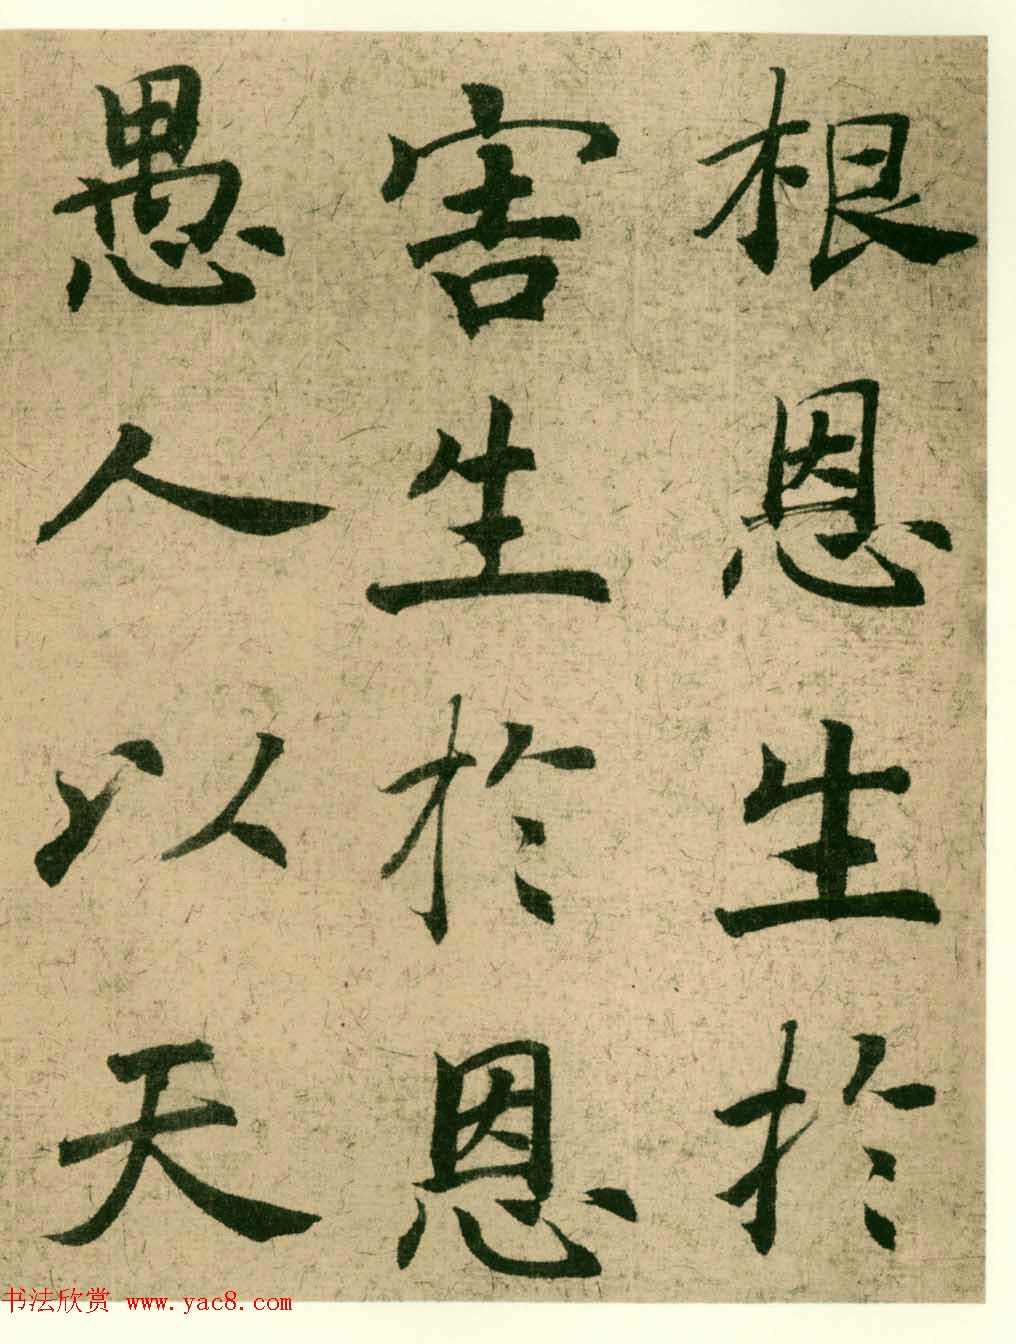 根恩生於
害生於恩
愚人以天
书法欣赏 www.yac8.com